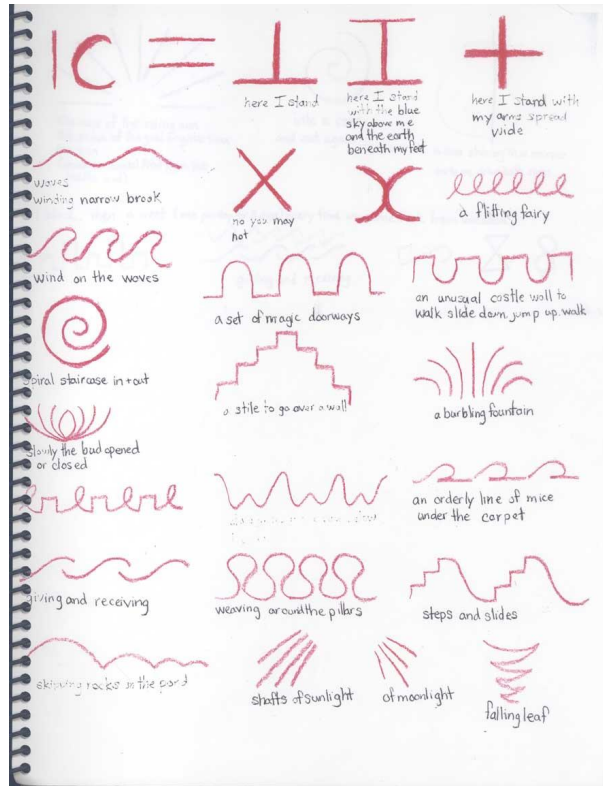 here I stand
here I stand
with the blue
sky above me
and the earth
beneath my feet
here I stand with
my arms spread
wide
waves
winding narrow brook
no you may
not
a flitting fairy
wind on the waves
a set of magic doorways
an unusual castle wall to
walk slide down, jump up, walk
spiral staircase in + out
a stile to go over a wall
a burbling fountain
slowly the bud opened
or closed
an orderly line of mice
under the carpet
giving and receiving
weaving around the pillars
steps and slides
skipping rocks in the pond
shafts of sunlight
of moonlight
falling leaf